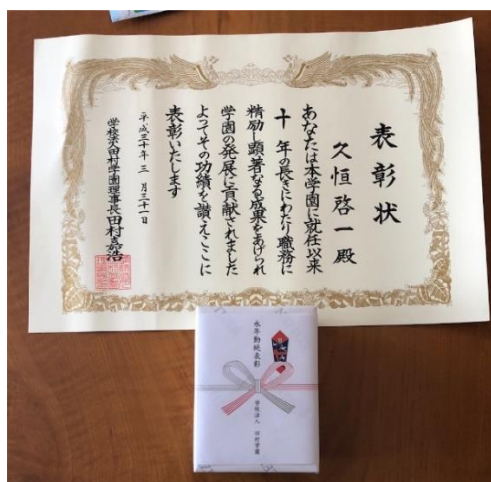 表彰状
久恒啓一殿
あなたは本学園に就任以来
十年の長きにわたり職務に
精励し顕著なる成果をあげられ
学園の発展に貢献されました
よってその功績を讃えここに
表彰いたします
平成三十年三月三十一日
学校法人田村学園理事長田村嘉浩
永年勤続表彰
学校法人 田村学園